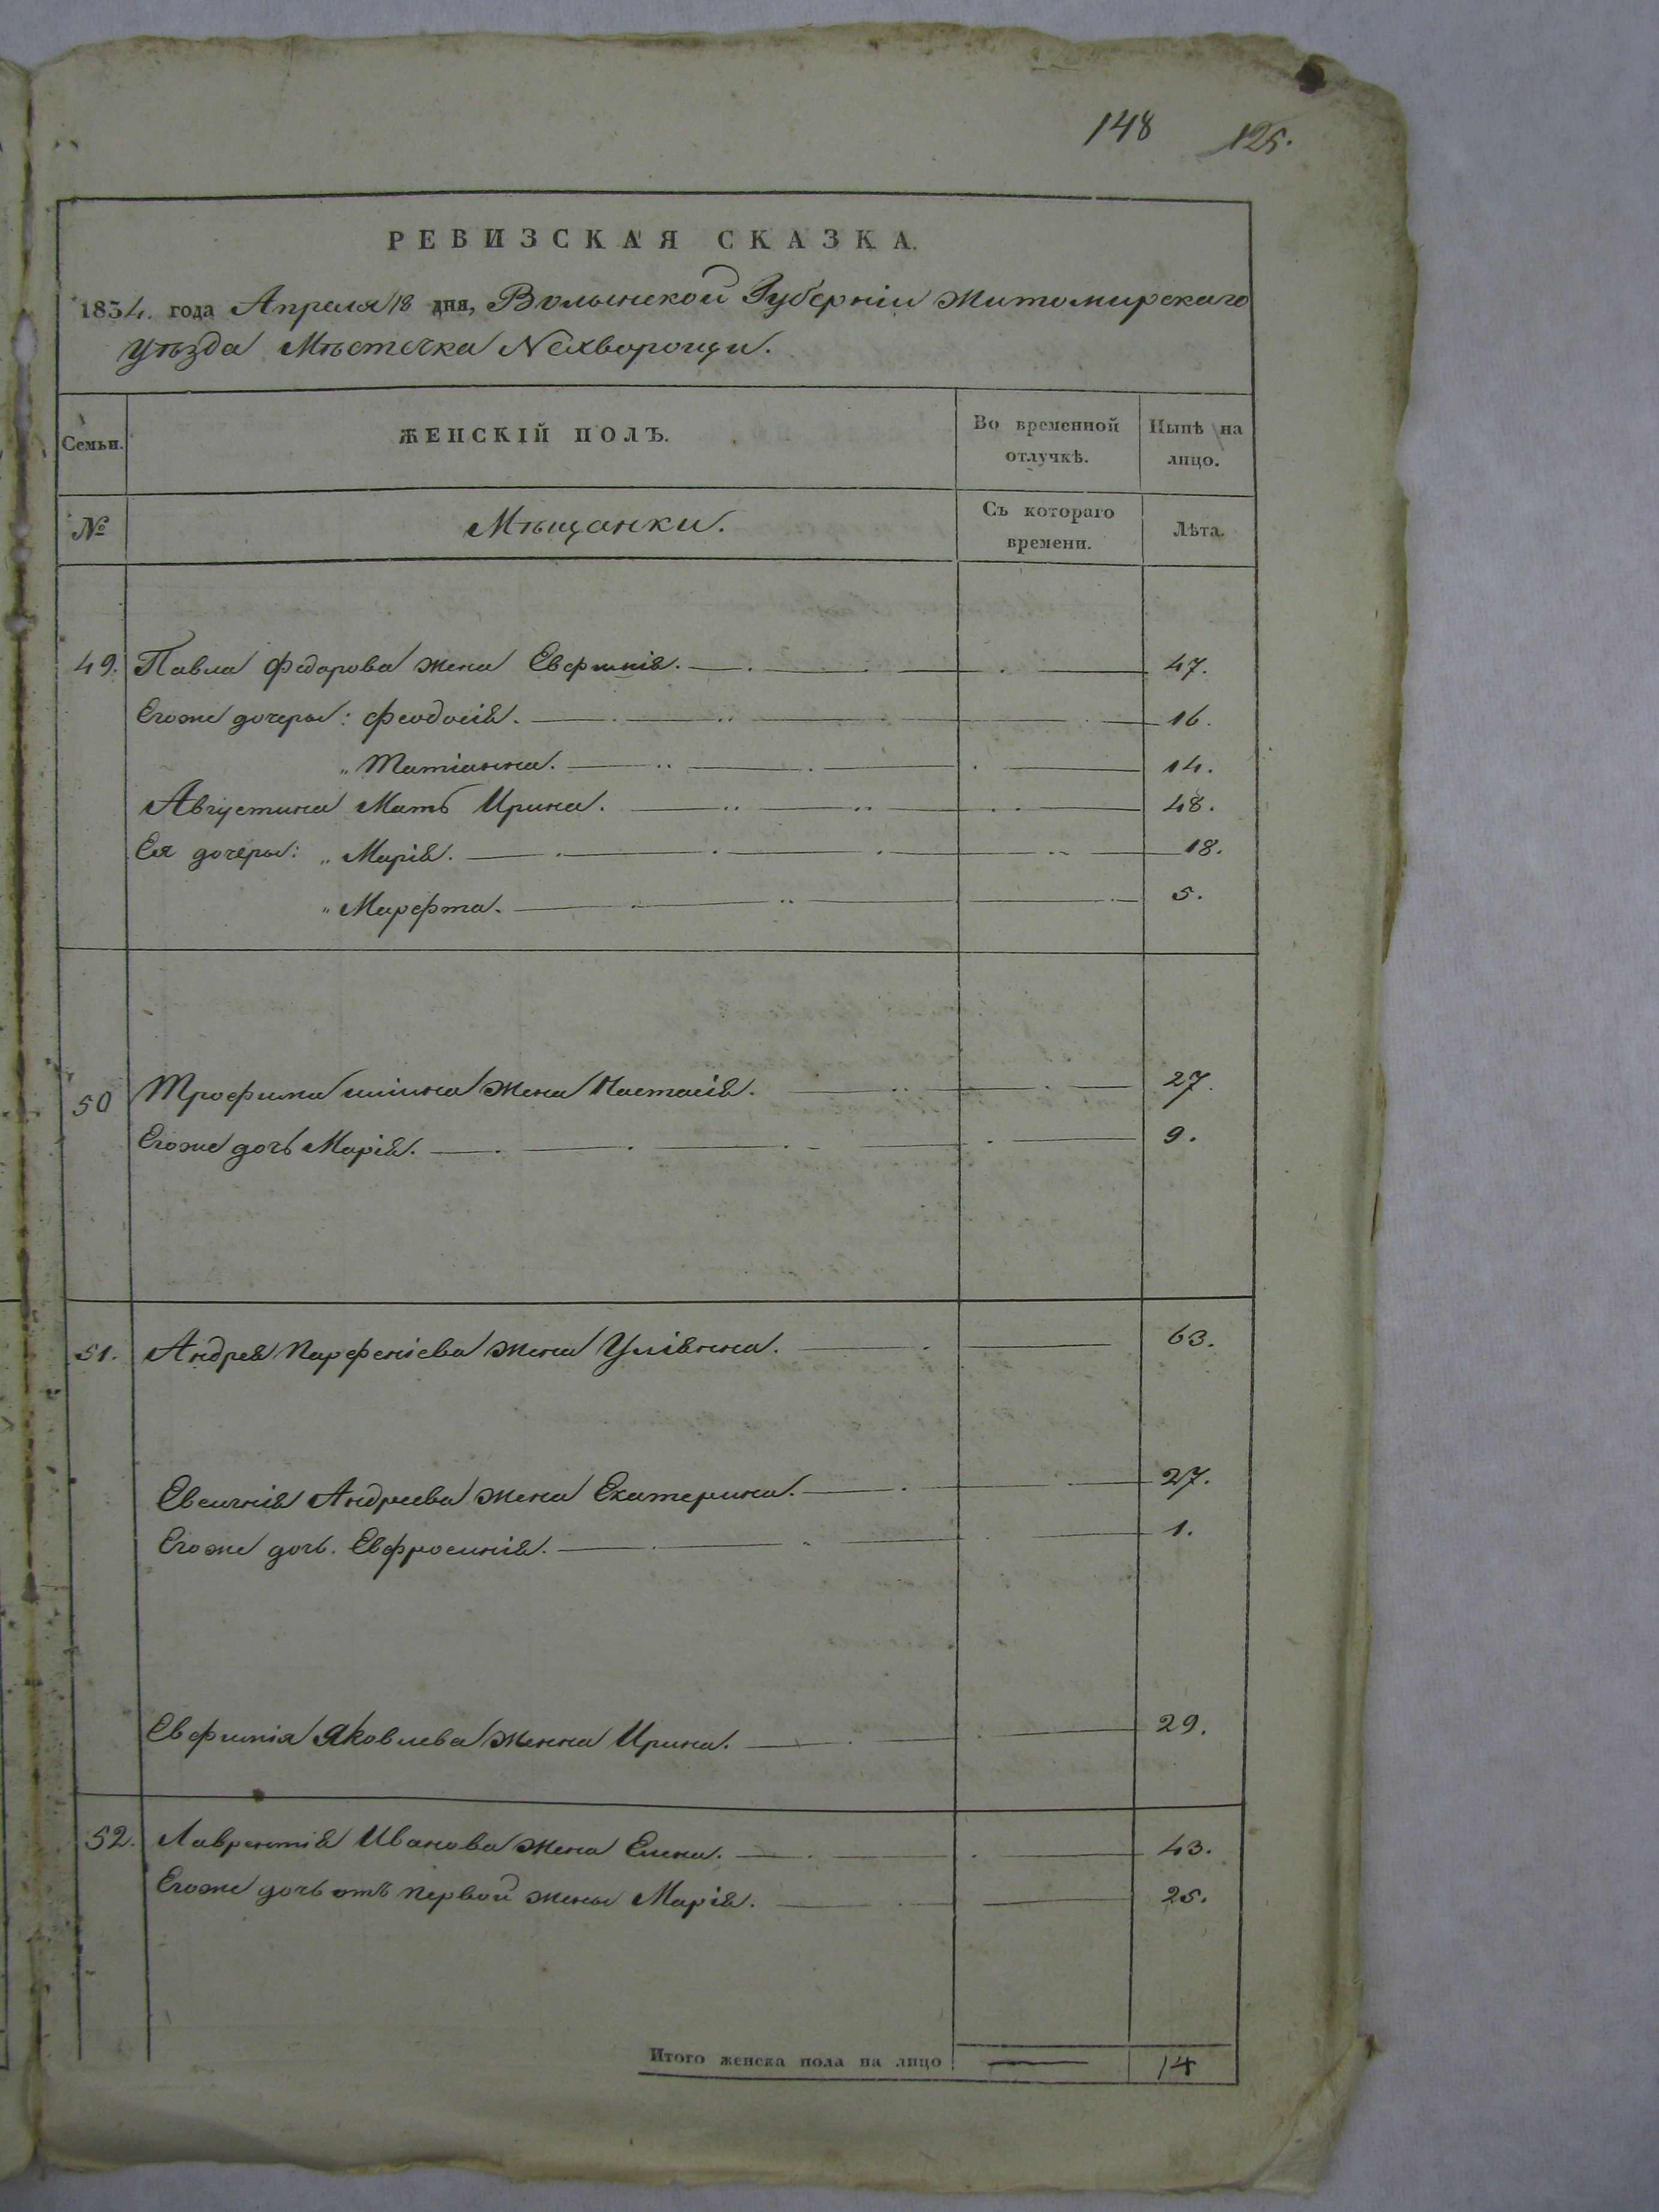 148 125.
РЕВИЗСКАЯ СКАЗКА.
1834. года Апреля 18 дня, Волынской Губерніи Житомирскаго
уѣзда Мѣстечка Нехворощи.
Семьи.
ЖЕНСКІЙ ПОЛЪ.
Во временной
отлучкѣ.
Нынѣ на
лицо.
№
Мѣщанки.
Съ котораго
времени.
Лѣта.
49. Павла Федорова жена Евфимія. 47.
Егоже дочеры: Феодосія. 16.
„ Татіанна. 14.
Августина Мать Ирина. 48.
Ея дочеры: „ Марія. 18.
„ Марефта. 5.
50 Трофима жена Настасія. 27.
Егоже дочь Марія. 9.
51. Андрея Парфеніева жена Уліянна. 63.
Евсигнія Андреева жена Екатерина. 27.
Егоже дочь. Евфросинія. 1.
Евфимія Яковлева женна Ирина. 29.
52. Лаврентія Иванова жена Елена. 43.
Егоже дочь отъ первой жены Марія. 25.
Итого женска пола на лицо 14